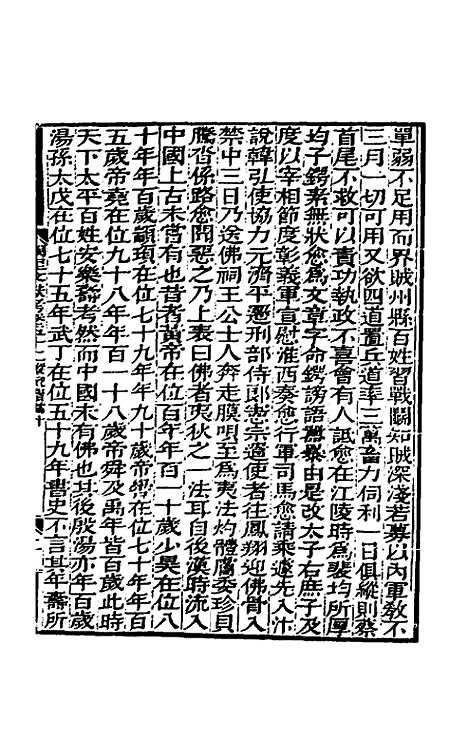 單弱不足用而界賊州縣百姓習戰鬭知賊深淺若募以內軍敎不
三月一切可用又欲四道置兵道率三萬畜力伺利一日俱縱則蔡
首尾不救可以責功執政不喜會有人詆愈在江陵時爲裴均所厚
均子鍔素無狀愈爲文章字命鍔謗語囂𭭕由是改太子右庶子及
度以宰相節度彰義軍宣慰淮西奏愈行軍司馬愈請乘遽先入汴
說韓弘使協力元濟平遷刑部侍郎憲宗遣使者往鳳翔迎佛骨入
禁中三日乃送佛祠王公士人奔走膜唄至爲夷法灼體膚委珍貝
騰沓係路愈聞惡之乃上表曰佛者夷狄之一法耳自後漢時流入
中國上古未嘗有也昔者黃帝在位百年年百一十歲少昊在位八
十年年百歲顓頊在位七十九年年九十歲帝嚳在位七十年年百
五歲帝堯在位九十八年年百一十八歲帝舜及禹年皆百歲此時
天下太平百姓安樂壽考然而中國未有佛也其後殷湯亦年百歲
湯孫太戊在位七十五年武丁在位五十九年書史不言其年壽所